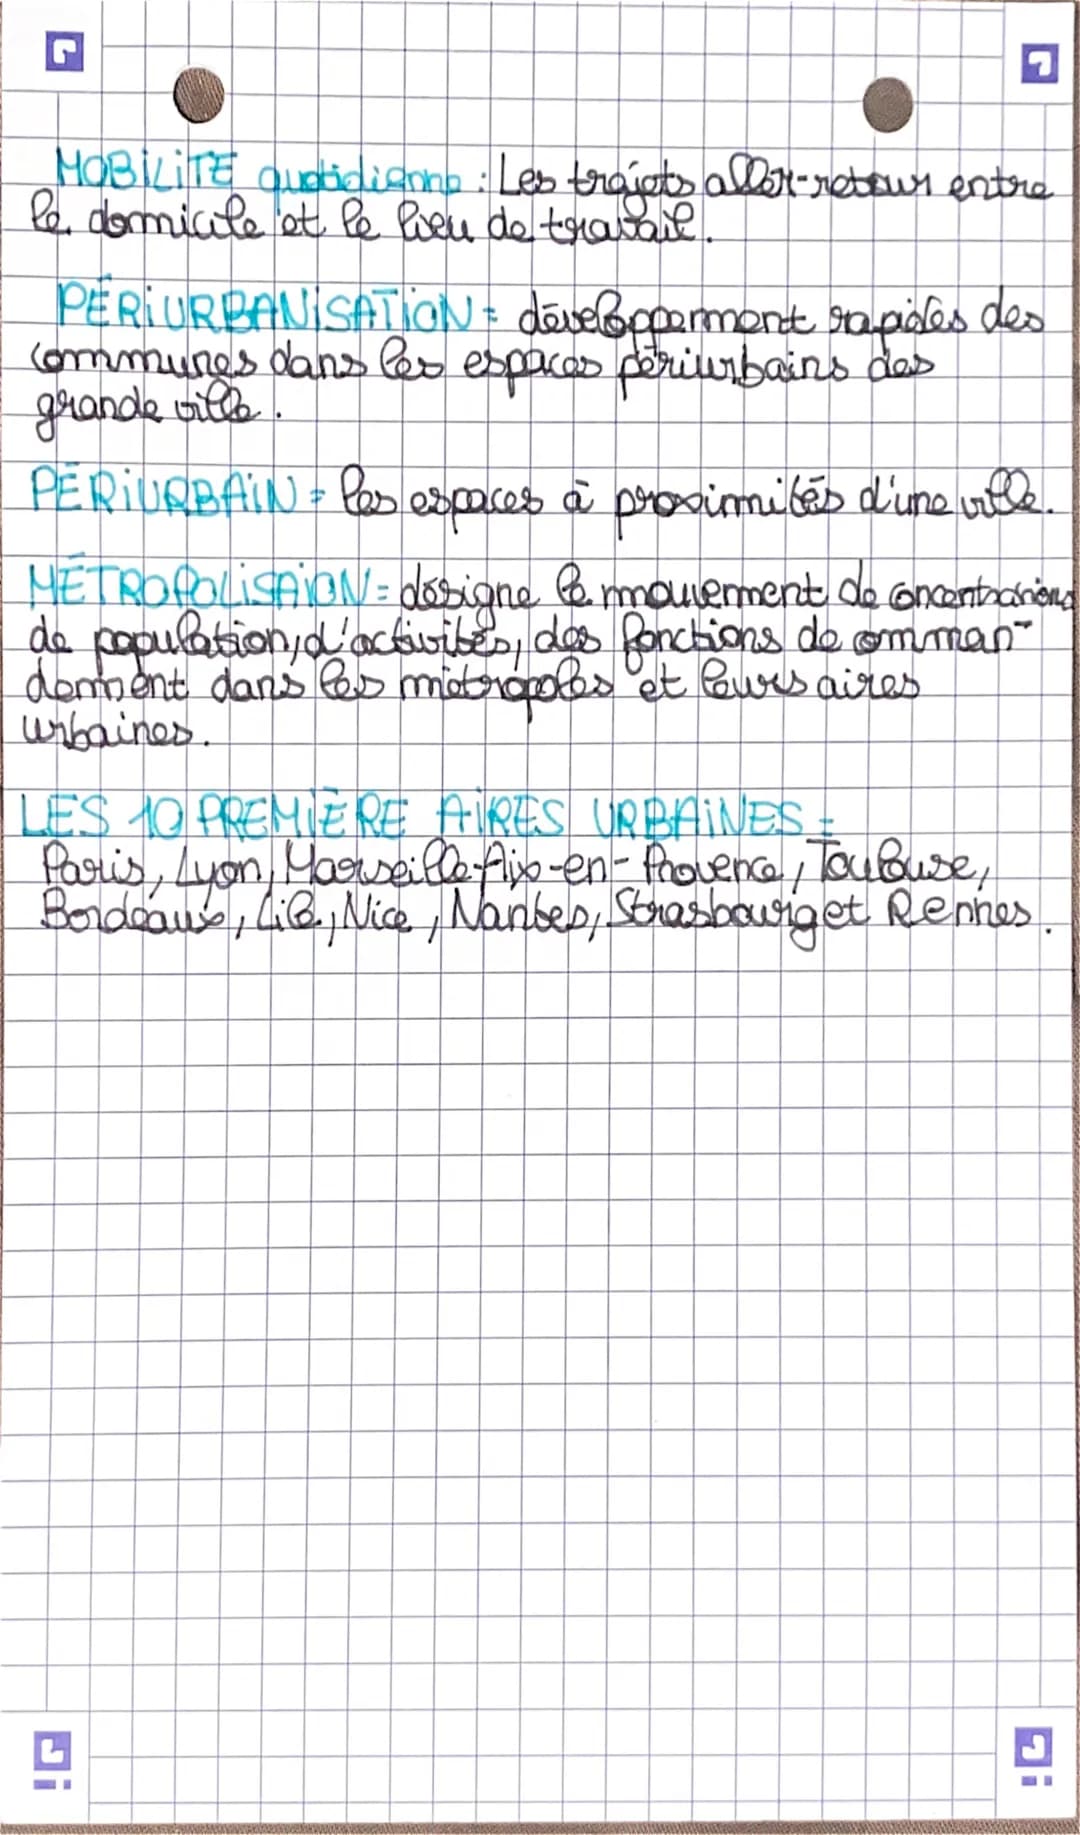 MOBILITÉ quotidienne : Les trajets aller-retour entre
le domicile et le lieu de travail.
PÉRIURBANISATION = développerment rapides des
communes dans les espaces périurbains des
grande ville.
PÉRIURBAIN = les espaces à proximités d'une ville.
MÉTROPOLISAION = désigne le mouvement de concentrations
de population, d'activités, des fonctions de comman-
dement dans les métropoles et leurs aires
urbaines.
LES 10 PREMIÈRE AIRES URBAINES =
Paris, Lyon, Marseille-Aix-en-Provence, Toulouse,
Bordeaux, Lille, Nice, Nantes, Strasbourg et Rennes.